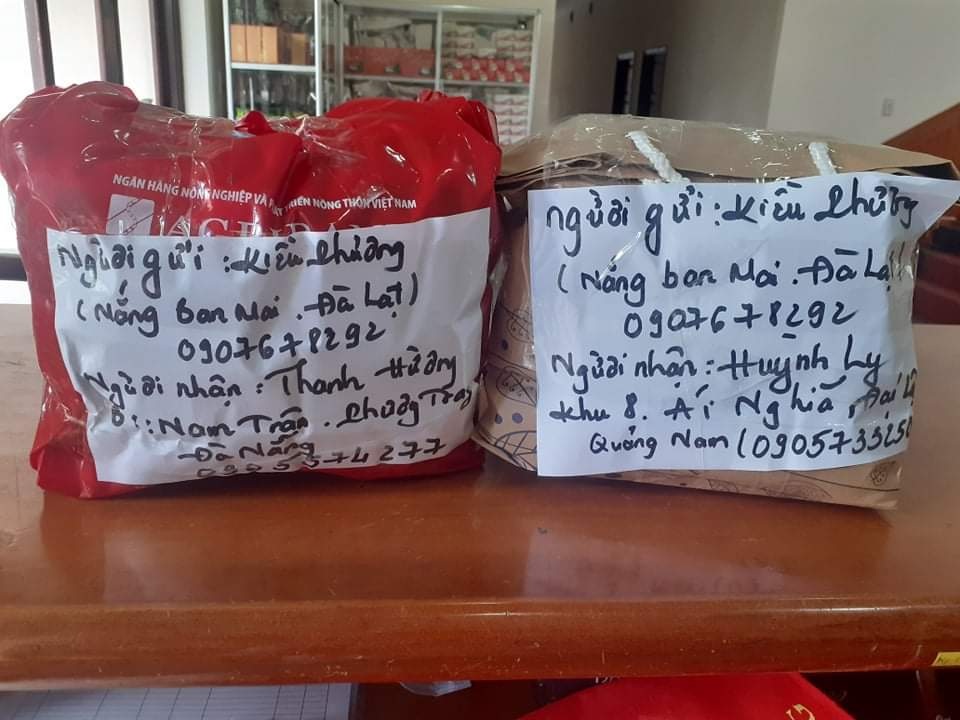 NGÂN HÀNG NÔNG NGHIỆP VÀ PHÁT TRIỂN NÔNG THÔN VIỆT NAM
Người gửi : Kiều Phương
(Nắng ban Mai . Đà Lạt)
0907678292
Người nhận : Thanh Hường
Đc : Nam Trân . Phường
Đà Nẵng
0905574277
Người gửi : Kiều Phương
(Nắng ban Mai . Đà Lạt)
0907678292
Người nhận : Huỳnh Ly
Khu 8 . Ái Nghĩa , Đại
Quảng Nam (090573525